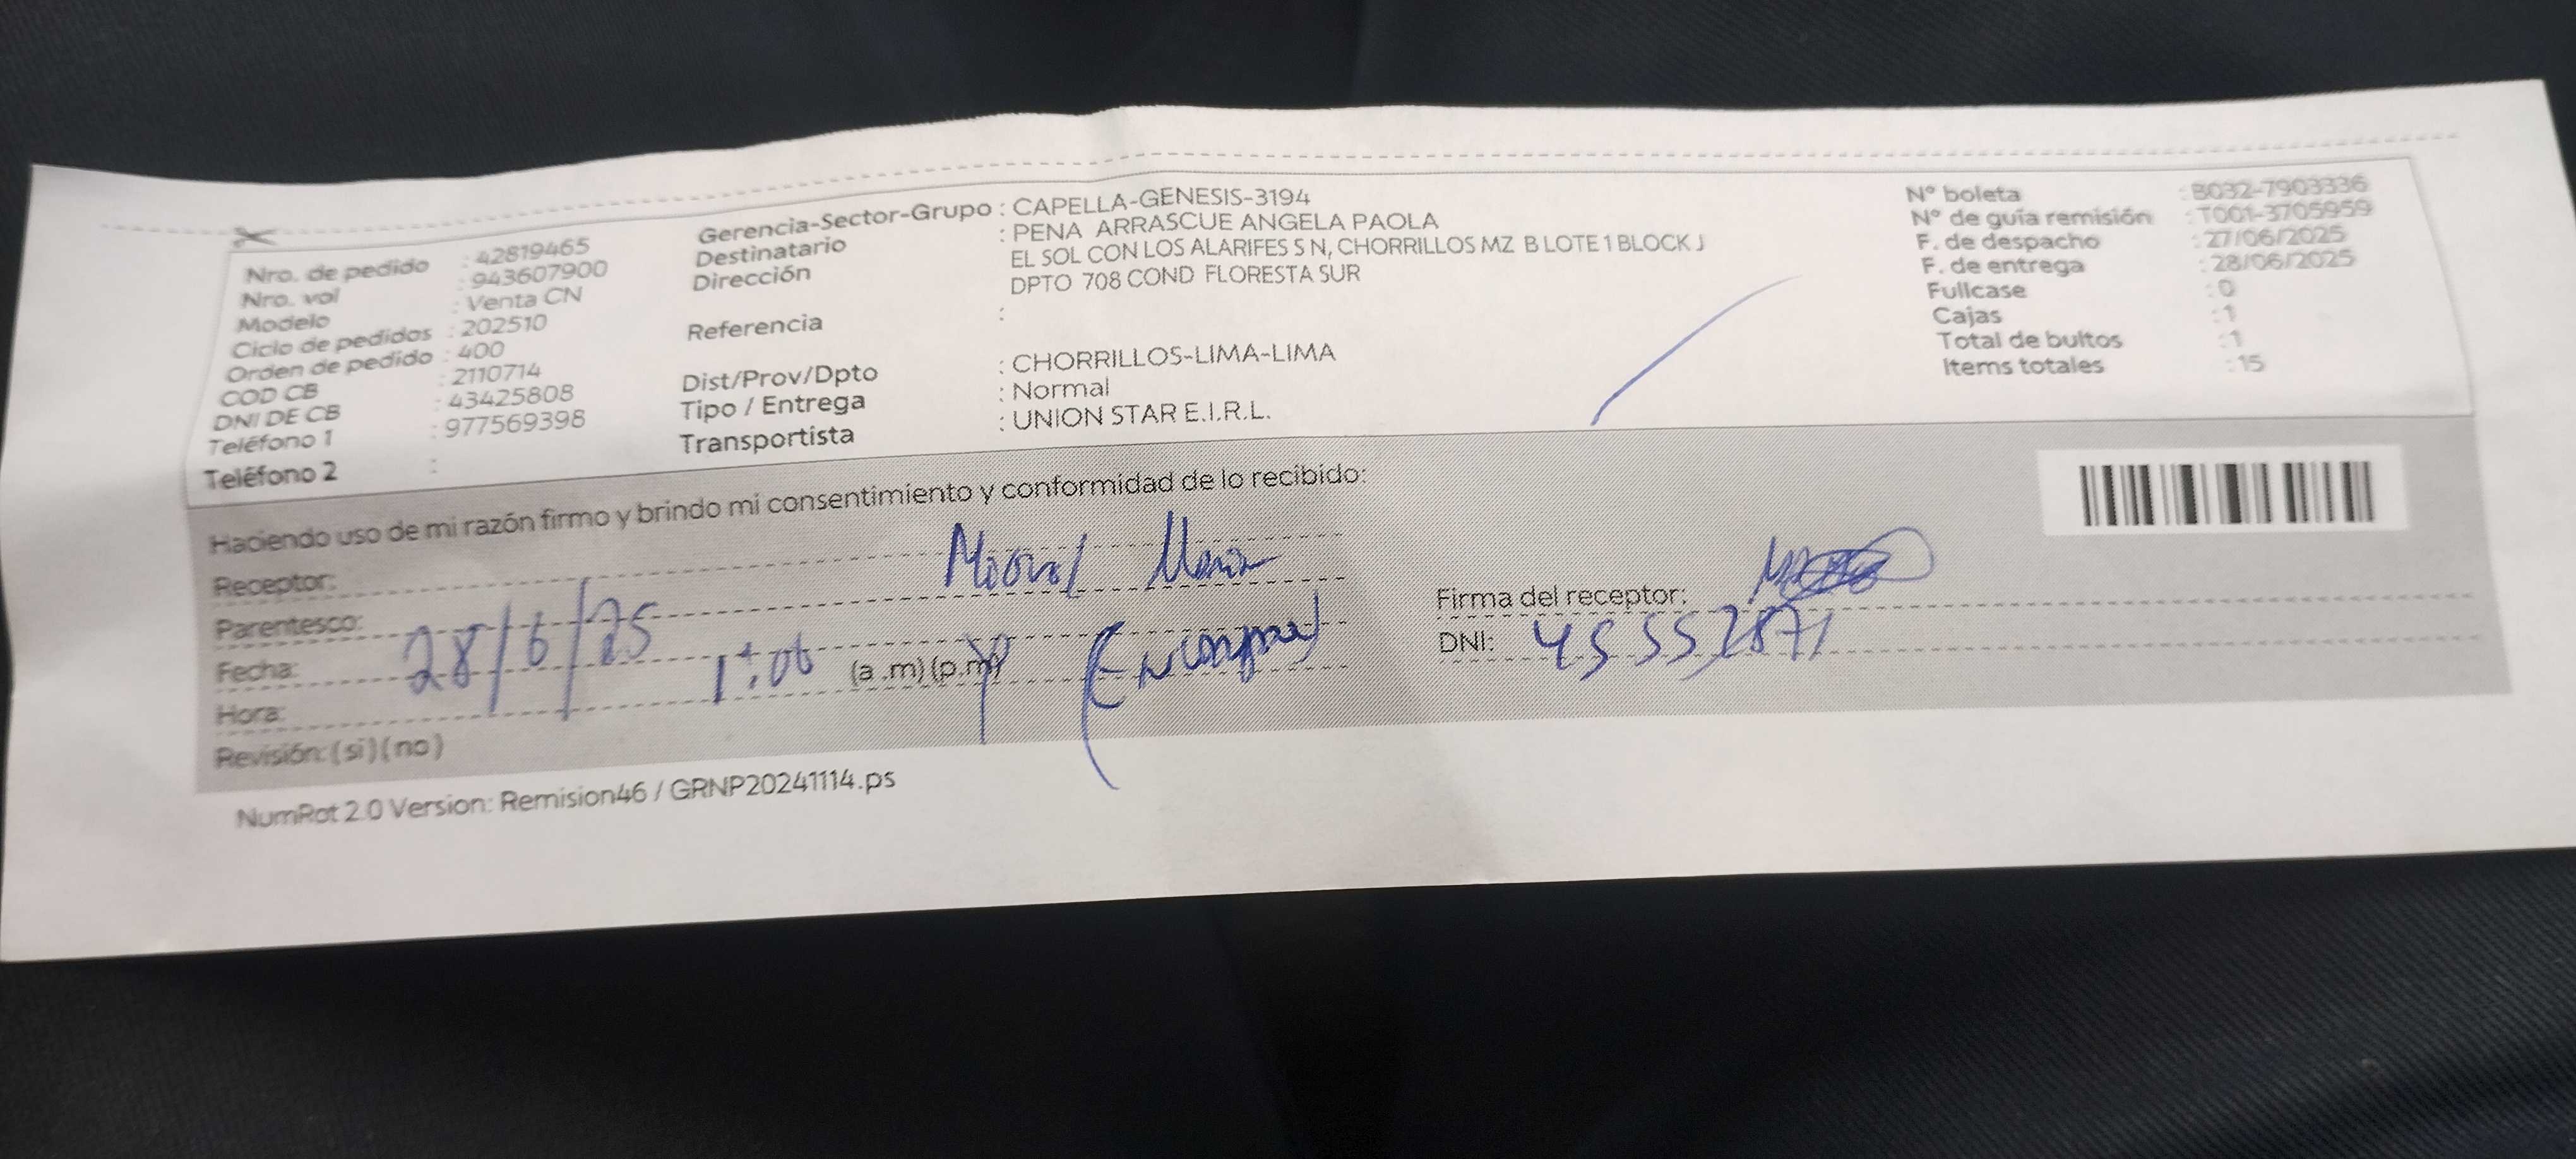 Nro. de pedido : 42819465
Nro. vol : 943607900
Modelo : Venta CN
Ciclo de pedidos : 202510
Orden de pedido : 400
COD CB : 2110714
DNI DE CB : 43425808
Teléfono 1 : 977569398
Teléfono 2 :
Gerencia-Sector-Grupo : CAPELLA-GENESIS-3194
Destinatario : PENA ARRASCUE ANGELA PAOLA
Dirección EL SOL CON LOS ALARIFES S N, CHORRILLOS MZ B LOTE 1 BLOCK J
DPTO 708 COND FLORESTA SUR
Referencia :
Dist/Prov/Dpto : CHORRILLOS-LIMA-LIMA
Tipo / Entrega : Normal
Transportista : UNION STAR E.I.R.L.
N° boleta : B032-7903336
N° de guía remisión : T001-3705959
F. de despacho : 27/06/2025
F. de entrega : 28/06/2025
Fullcase : 0
Cajas : 1
Total de bultos : 1
Items totales : 15
Haciendo uso de mi razón firmo y brindo mi consentimiento y conformidad de lo recibido:
Receptor:
Parentesco:
Fecha: 28/6/25
Hora: 1:06 (a.m) (p.m)
Revisión: (si) (no)
Firma del receptor:
DNI: 45552871
NumRot 2.0 Version: Remision46 / GRNP20241114.ps